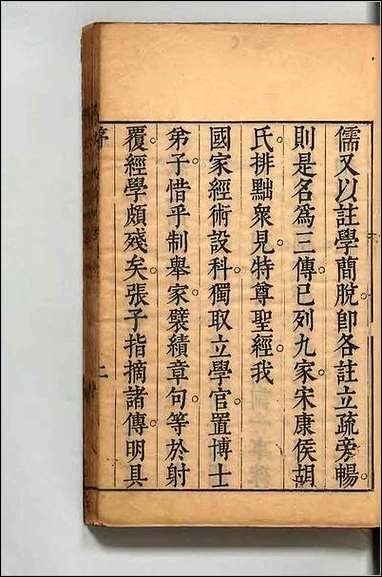 儒又以註學簡脫卽各註立疏旁暢
則是名爲三傳已列九家宋康侯胡
氏排黜衆見特尊聖經我
國家經術設科獨取立學官置博士
弟子惜乎制舉家襞績章句等於射
覆經學頗殘矣張子指摘諸傳明具
序
二